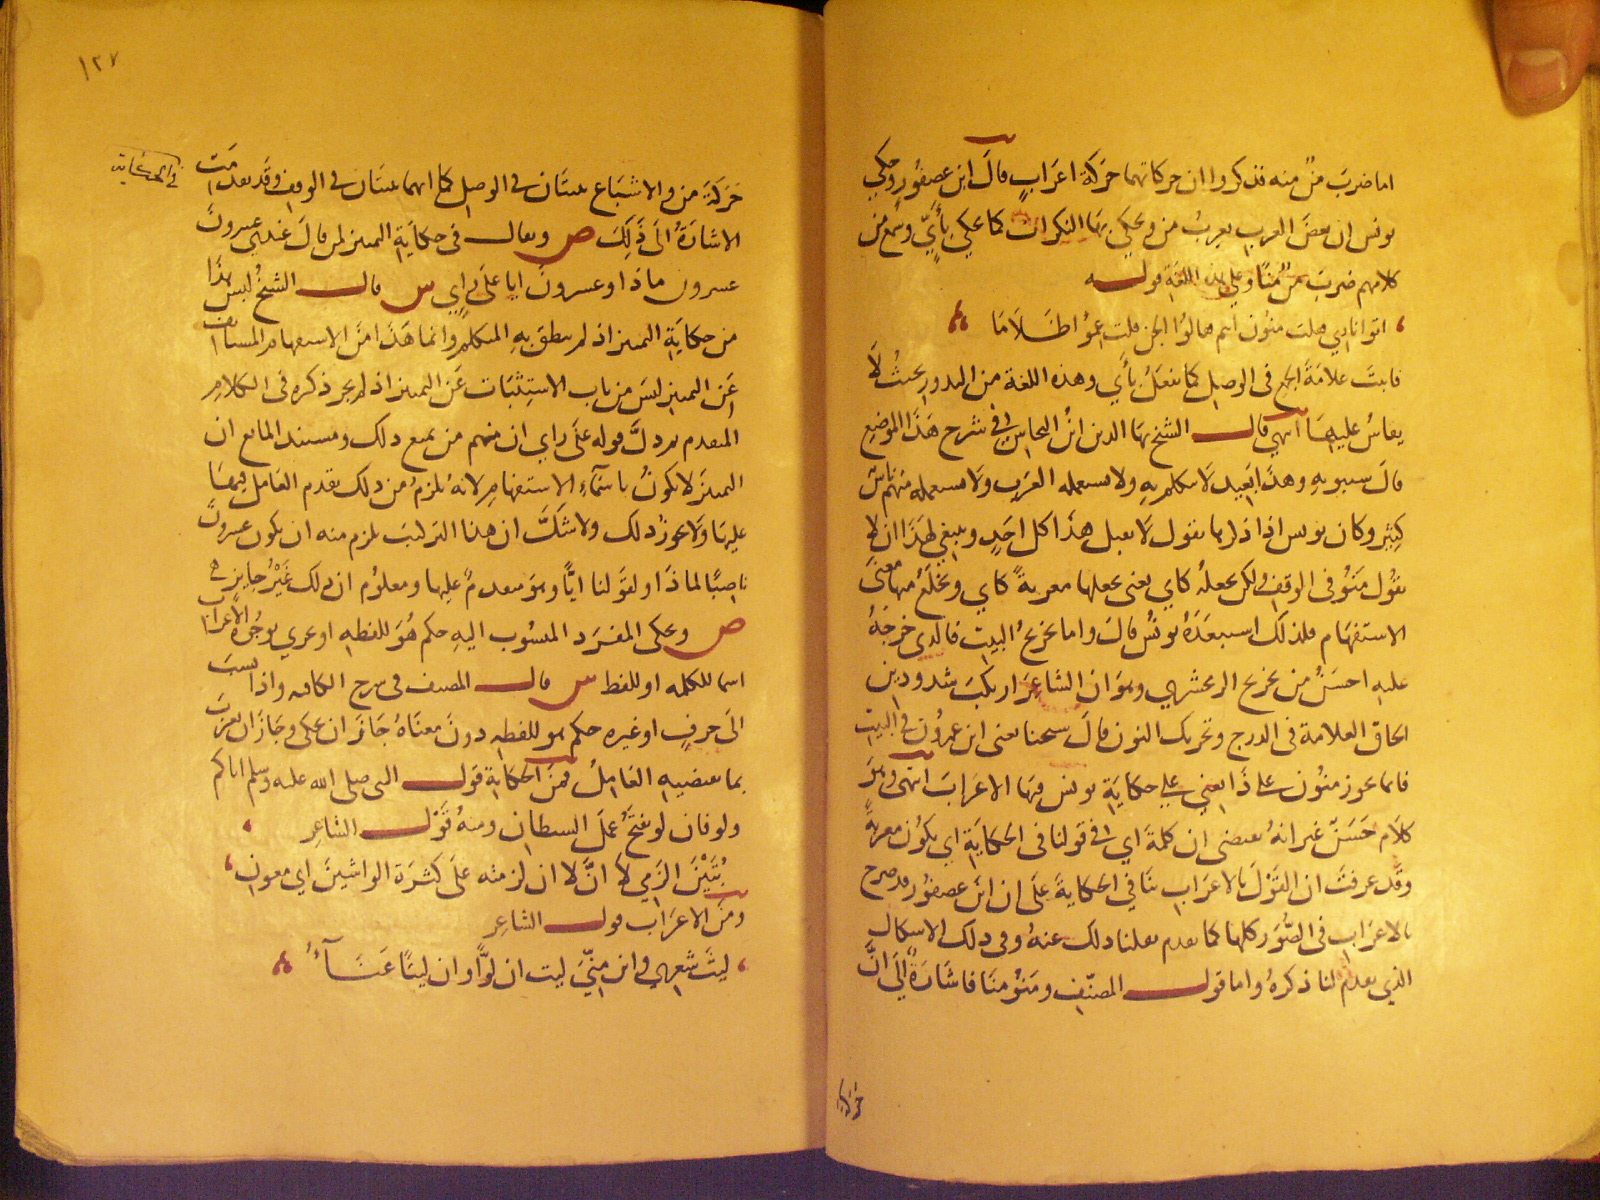 اما ضرب منٌ منه فذكروا ان حركاتهما حركة اعرابٍ قال ابن عصفور وحكي
يونس ان بعض العرب يعرب من ويحكي بها النكرات كما يحكي بأيٍّ وسمع من
كلامهم ضرب منٌ منًا وعلى هذه اللغة قولـــه
اتوا ناري فقلت منون انتم فقالوا الجن قلت عموا ظلاما
فاثبت علامة الجمع في الوصل كما يفعل بأي وهذه اللغة من الندور بحيث لا
يقاس عليها انتهي قالـــ الشيخ بهاء الدين ابن النحاس في شرح هذا الموضع
قال سيبويه وهذا بعيد لا تتكلم به ولا تستعمله العرب ولا يستعمله منهم ناس
كثير وكان يونس اذا ذكرها يقول لا يقبل هذا كل احد وينبغي لهذا ان لا
يقول منو في الوقف ولكن يجعله كاي يعني يجعلها معربة كاي ويخلع منها معنى
الاستفهام فلذلك استبعده يونس قال واما تخريج البيت فالذي خرجه
عليه احسن من تخريج الزمخشري وهو ان الشاعر ارتكب شذوذين
الحاق العلامة في الدرج وتحريك النون قال شيخنا يعني ابن عمرون في البيت
فانما يجوز منون على ذا يعني على حكاية يونس فيها الاعراب انتهى وهو
كلام حسن غير انه يقتضي ان كلمة اي في قولنا في الحكاية اي يكون معربة
وقد عرفت ان القول بالاعراب ينافي الحكاية على ان ابن عصفور قد صرح
بالاعراب في الصور كلها كما تقدم نقلنا ذلك عنه وفي ذلك الاشكال
الذي تقدم لنا ذكره واما قولـــ المصنف ومنو منا فاشارة الى انَّ
حركة
١٢٧
في الحكاية
حركة من والاشباع يثبتان في الوصل كما انهما يثبتان في الوقف وقد تقدمت
الاشارة الى ذلك ص ويقالـــ في حكاية التمييز لمن قال عندي عشرون
عشرون ماذا او عشرون ايا على راي س قالـــ الشيخ ليس هذا
من حكاية التمييز اذ لم ينطق به المتكلم وانما هذا من الاستفهام المستانف
عن التمييز ليس من باب الاستثبات عن التمييز اذ لم يجر ذكره في الكلام
المتقدم ثم دلَّ قوله على راي ان منهم من يمنع ذلك ومستند المانع ان
التمييز لا يكون باسماء الاستفهام لانه يلزم من ذلك تقدم العامل فيها
عليها ولا يجوز ذلك ولا شكَّ ان هذا التركيب يلزم منه ان يكون عشرون
ناصبًا لماذا او لقولنا ايًّا وهو متقدم عليها ومعلوم ان ذلك غير جايز
ص ويحكى المفرد المنسوب اليه حكم هو للفظه او يجري بوجوه الاعراب
اسما للكلمه او للفظ س قالـــ المصنف في شرح الكافيه واذا نسبت
الى حرف او غيره حكم هو للفظه دون معناه جاز ان يحكى وجاز ان يعرب
بما يقتضيه العامل فمن الحكاية قولـــ النبي صلى الله عليه وسلم اياكم
ولو فان لو تفتح عمل الشيطان ومنه قولـــ الشاعر
بُثَيْنَ الزمي لا انَّ لا ان لزمته على كثرة الواشين اي معون
ومن الاعراب قولـــ الشاعر
ليت شعري واين منّي ليت ان لوًّا وان ليتًا عناءُ